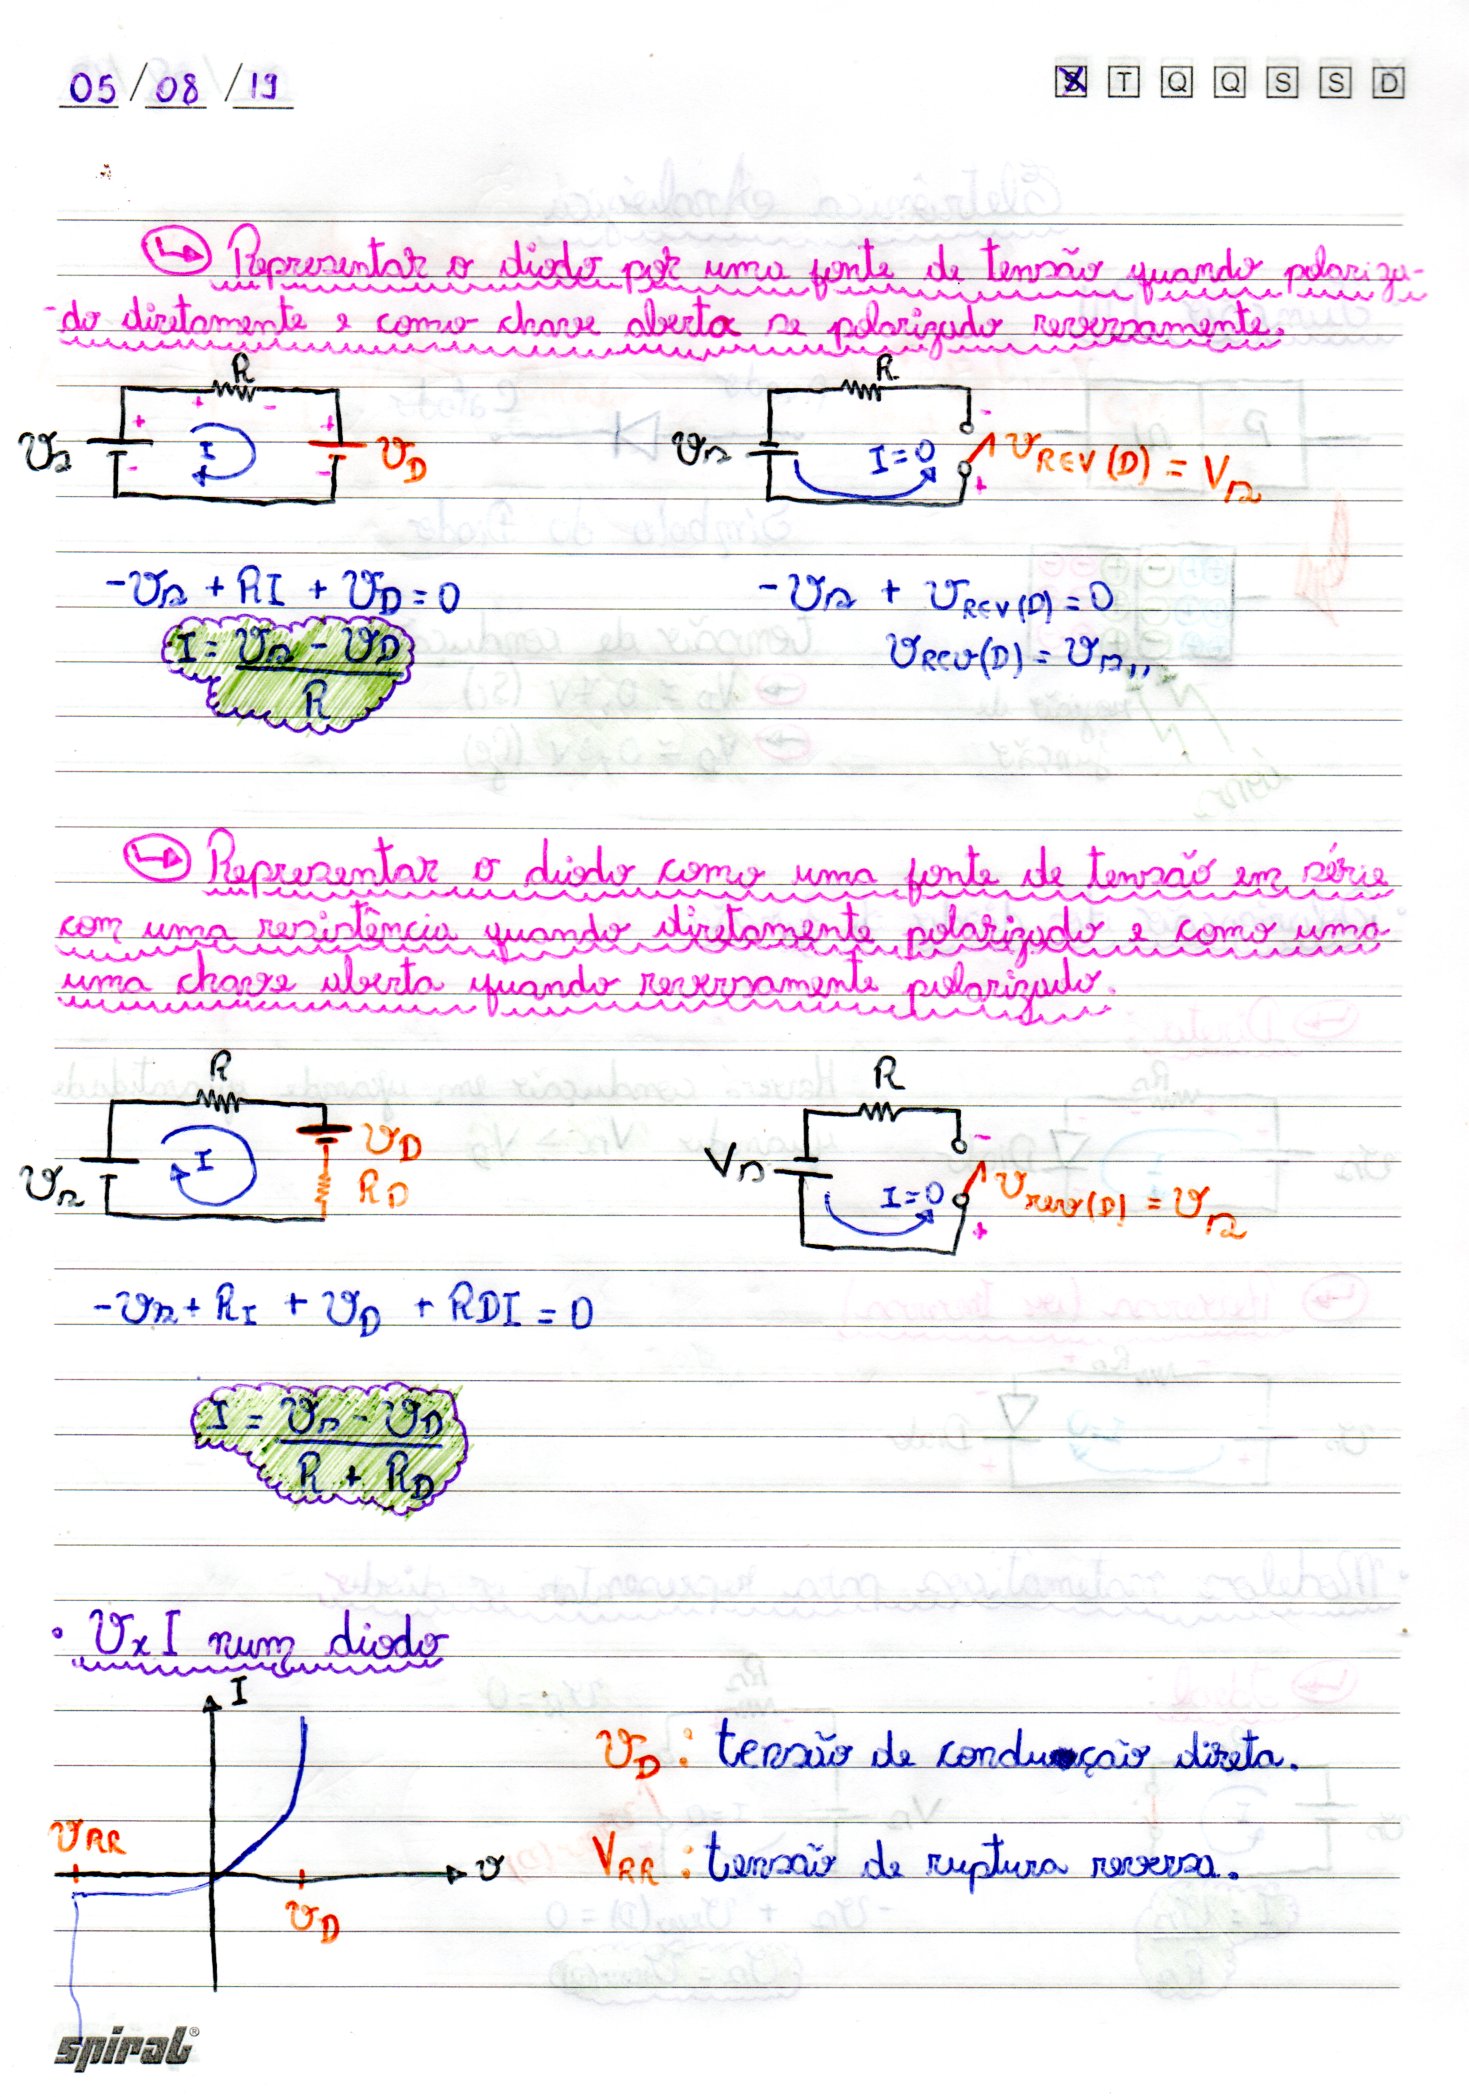 05/08/19
S T Q Q S S D
↳ Representar o diodo por uma fonte de tensão quando polariza-
-do diretamente e como chave aberta se polarizado reversamente.
R
+ -
+ +
Vs I VD
- -
R
-
Vs I=0 VREV(D) = Vs
+
-Vs + RI + VD = 0
I = Vs - VD
R
-Vs + VREV(D) = 0
VREV(D) = Vs,,
↳ Representar o diodo como uma fonte de tensão em série
com uma resistência quando diretamente polarizado e como uma
uma chave aberta quando reversamente polarizado.
R
VD
Vs I RD
R
-
Vs I=0 Vrev(D) = Vs
+
-Vs + RI + VD + RDI = 0
I = Vs - VD
R + RD
• V x I num diodo
I
VRR
V
VD
VD : tensão de condução direta.
VRR : tensão de ruptura reversa.
spiral®